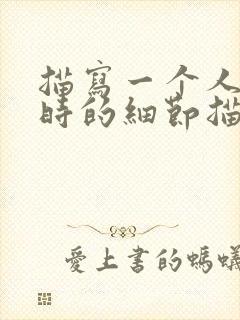 描寫一个人
時的細節描
愛上書的螞蟻